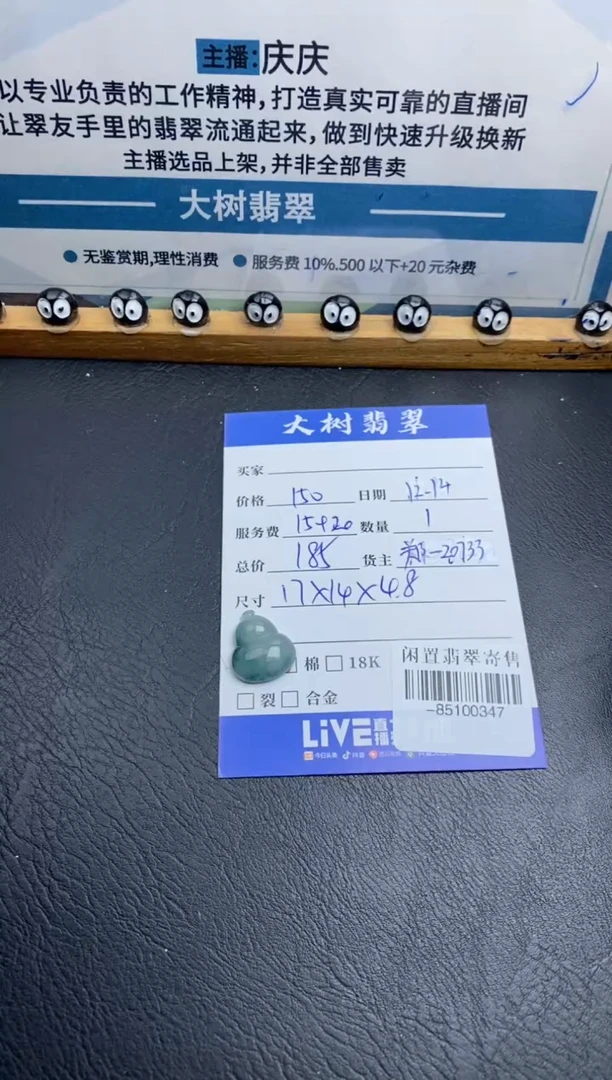 主播:庆庆
以专业负责的工作精神,打造真实可靠的直播间
让翠友手里的翡翠流通起来,做到快速升级换新
主播选品上架,并非全部售卖
大树翡翠
无鉴赏期,理性消费 服务费10%.500以下+20元杂费
大树翡翠
买家
价格 150 日期 12-14
服务费 15+20 数量 1
总价 185 货主 郑-20733
尺寸 17X14X4.8
棉 18K
闲置翡翠寄售
裂 合金
-85100347
LiVE 直播
今日头条 抖音